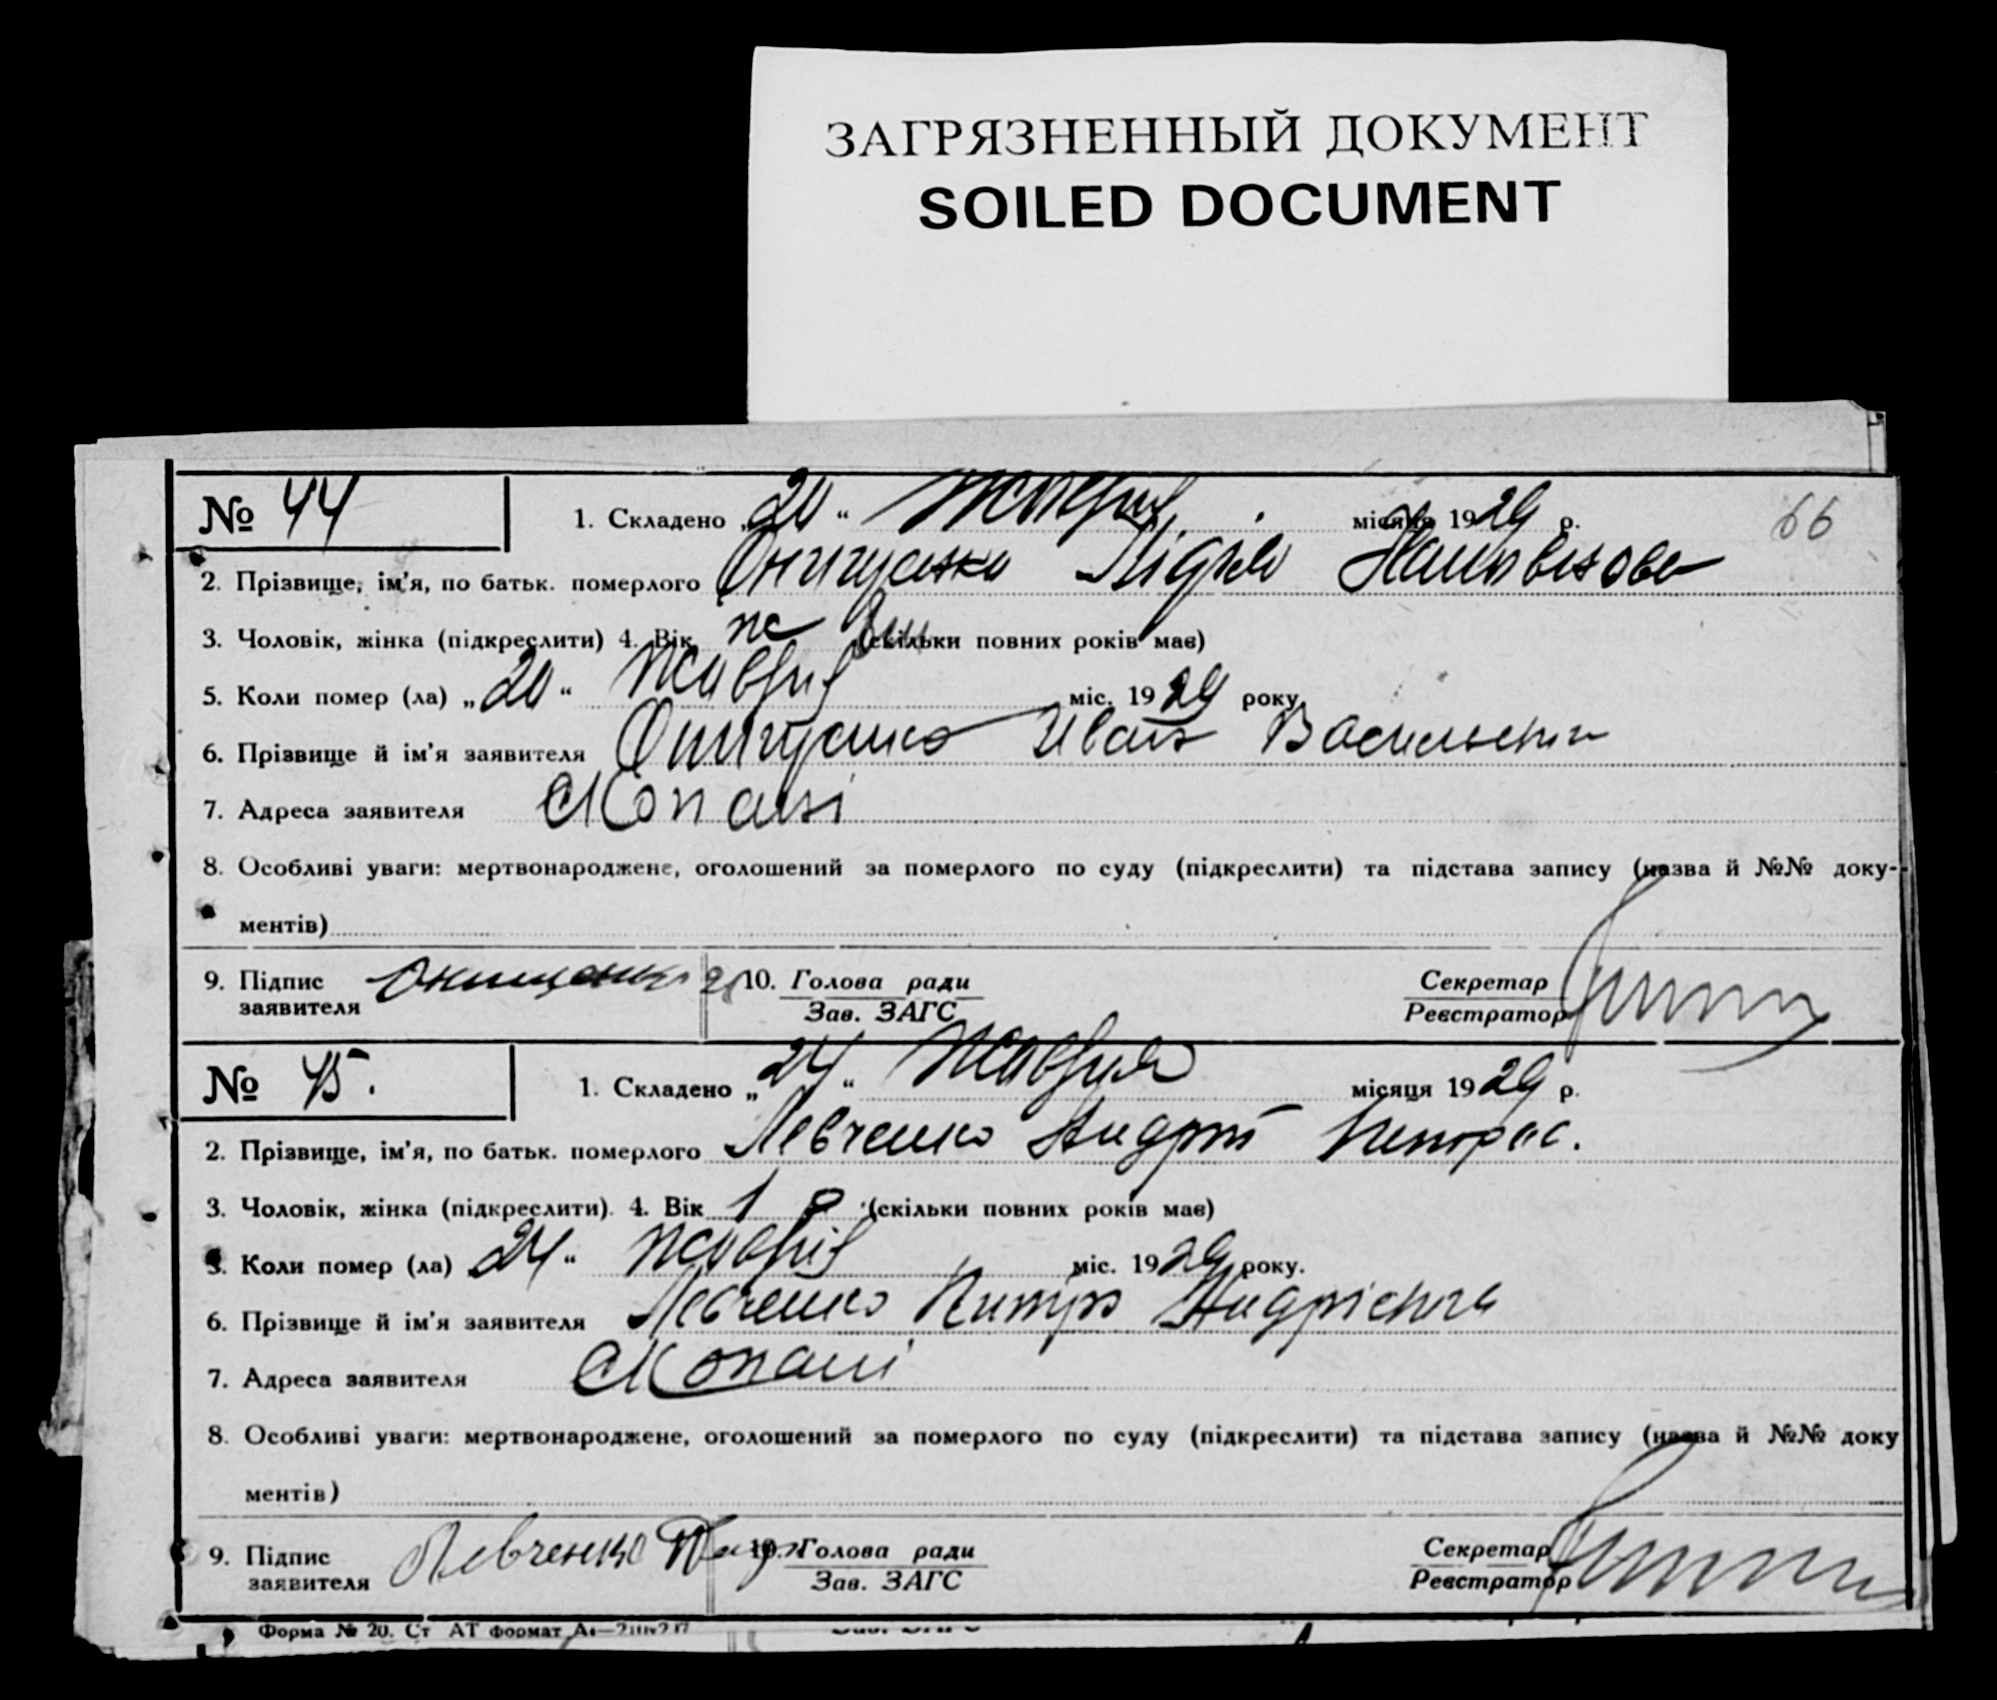 ЗАГРЯЗНЕННЫЙ ДОКУМЕНТ
SOILED DOCUMENT
66
№ 44
1. Складено „20“ Жовтня місяця 1929 р.
2. Прізвище, ім'я, по батьк. померлого Онищенко Лідія
3. Чоловік, жінка (підкреслити) 4. Вік (скільки повних років має)
5. Коли помер (ла) „20“ Жовтня міс. 1929 року.
6. Прізвище й ім'я заявителя Онищенко Иван Васильевич
7. Адреса заявителя с Копані
8. Особливі уваги: мертвонароджене, оголошений за померлого по суду (підкреслити) та підстава запису (назва й №№ доку-
ментів)
9. Підпис заявителя Онищенко 10. Голова ради Зав. ЗАГС Секретар Реєстратор
№ 45.
1. Складено „24“ Жовтня місяця 1929 р.
2. Прізвище, ім'я, по батьк. померлого Левченко Андрій
3. Чоловік, жінка (підкреслити). 4. Вік 1 (скільки повних років має)
5. Коли помер (ла) 24“ Жовтня міс. 1929 року.
6. Прізвище й ім'я заявителя Левченко Петро
7. Адреса заявителя с Копані
8. Особливі уваги: мертвонароджене, оголошений за померлого по суду (підкреслити) та підстава запису (назва й №№ доку
ментів)
9. Підпис заявителя Левченко 10. Голова ради Зав. ЗАГС Секретар Реєстратор
Форма № 20. Ст АТ формат